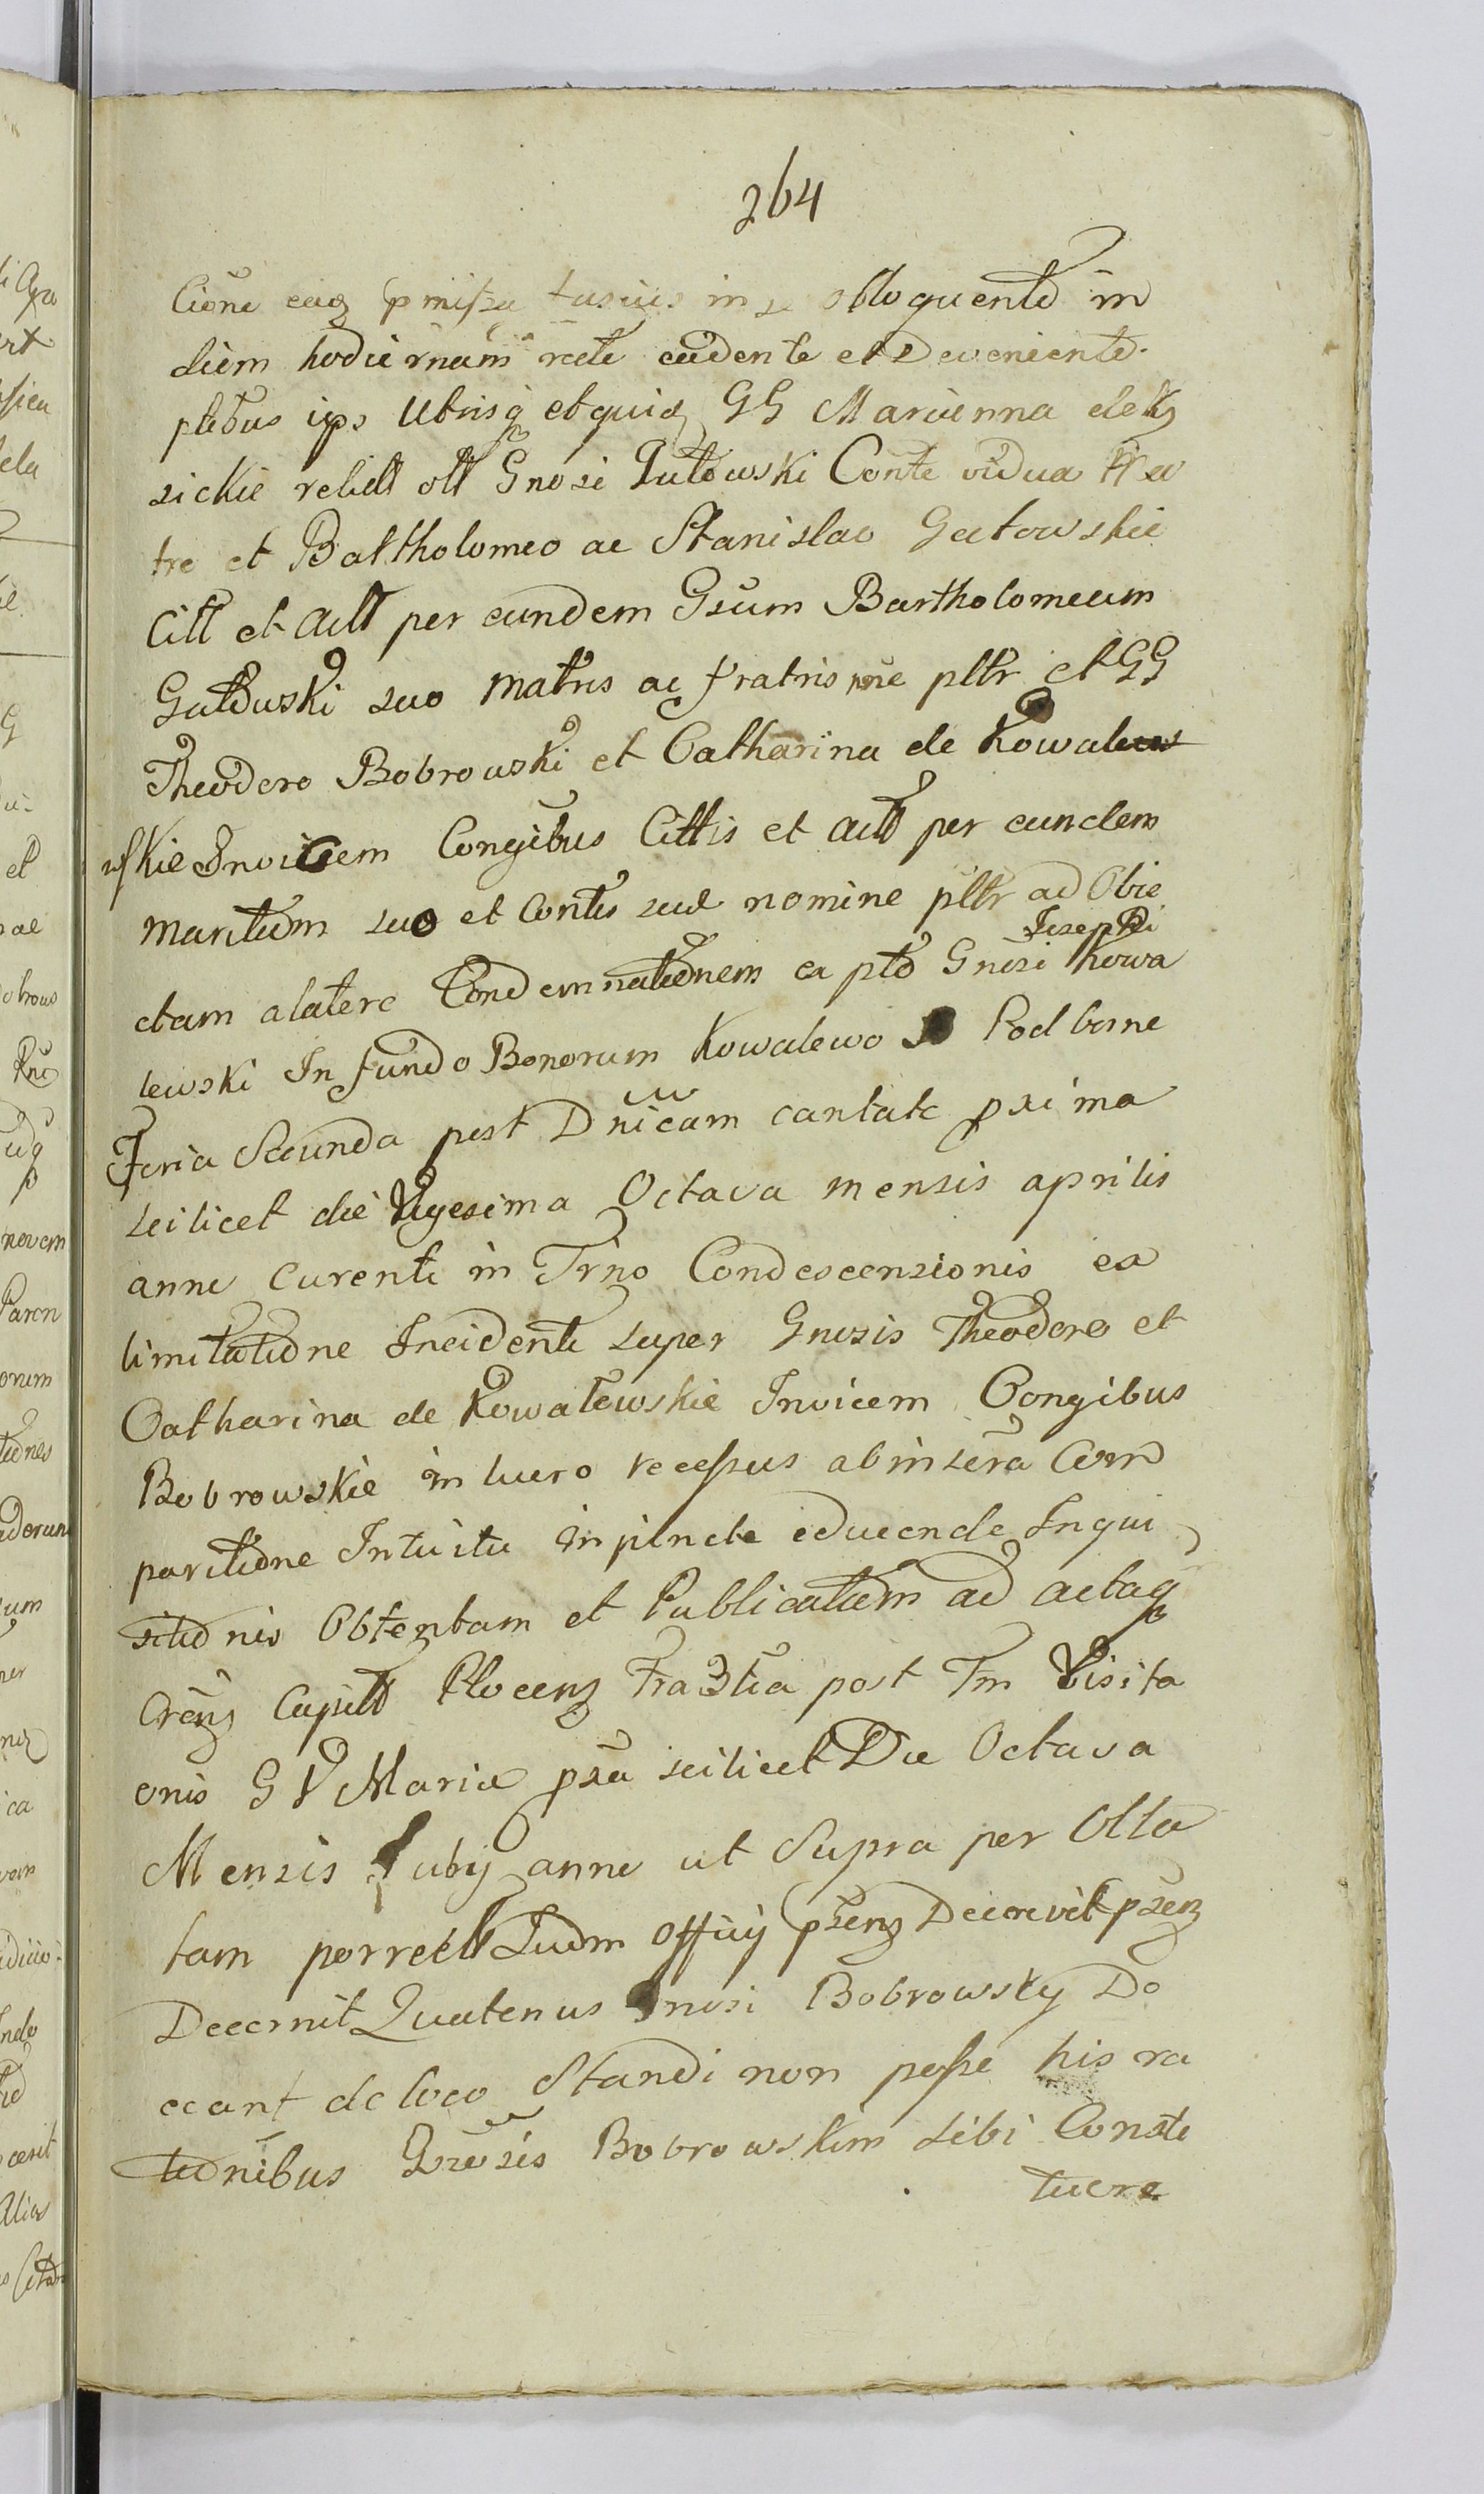 264
Cione eaq pmissa in se obloquente in
diem hodiernam recte cadente et Deveniente
ptibus ips Utrisq etquid GG Marianna de
sickie relict olt Gnosi Gutowski Conte vidua Ma
tre et Baltholomeo ac Stanislao Gutowskie
Citt et Actt per eundem Gsum Bartholomeum
Gutowski suo Matris ac fratris nne pltr et GG
Theodoro Bobrowski et Catharina de Kowalew
skie Invicem Congibus Cittis et actt per eundem
maritum suo et Contis suæ nomine pltr ad Obie
Iosephi
ctam alatere Condemnationem ea pte Gnosi Kowa
lewski In fundo Bonorum Kowalewo Podborne
Feria Secunda post Dnicam cantate pxima
scilicet die Vigesima Octava mensis aprilis
anni Curenti in Trno Condescensionis ex
limitatione Incidenti super Gnosis Theodoro et
Catharina de Kowalewskie Invicem Congibus
Bobrowskie in lucro recessus ab insera Com
paritione Intuitu inpuncto educende Inqui
sitionis Obtentam et Publicatam ad actaq
Crens Capitt Plocens Fra 3tia post Fm Visita
onis G V Mariæ pxa scilicet Die Octava
Mensis July anni ut Supra per Obla
tam porrect Iudm Officij psens Decrevit psens
Decernit Quatenus Gnosi Bobrowscy Do
ceant de loco Standi non posse his ra
tionibus Gnosis Bobrowskim sibi Consti
tuere